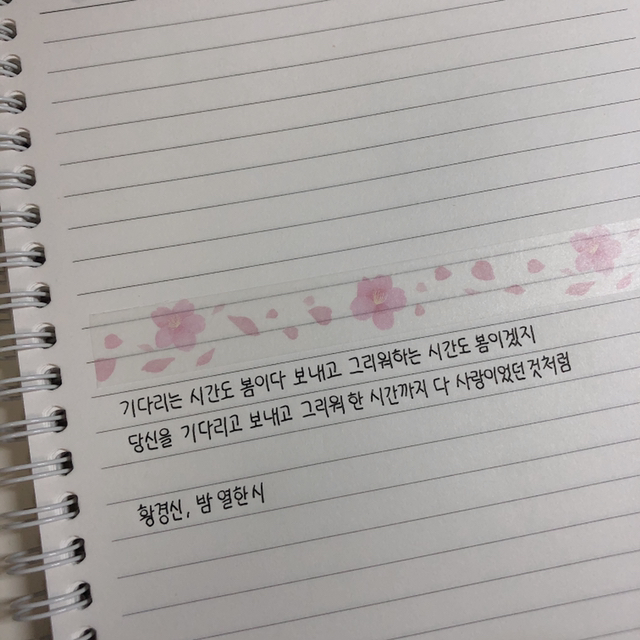 기다리는 시간도 봄이다 보내고 그리워하는 시간도 봄이겠지
당신을 기다리고 보내고 그리워 한 시간까지 다 사랑이었던 것처럼
황경신, 밤 열한시